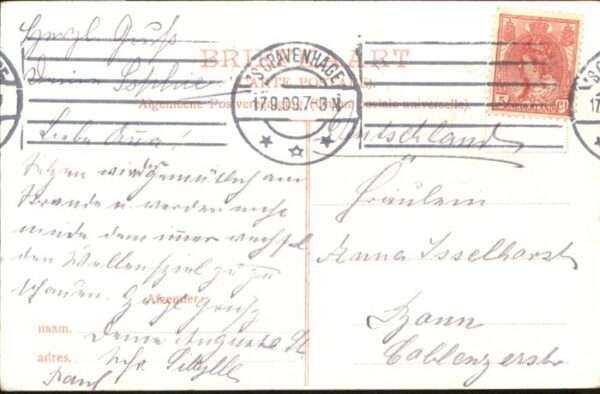 Herzl. Gruß
Deine Sophie
BRIEFKAART
CARTE POSTALE
Algemeene Postvereeniging (Union postale universelle).
'S GRAVENHAGE
17.9.09.7-8N
5
Deutschland
Liebe Anna!
Sitzen wieder gemütlich am
Strande u. werden nicht
müde dem immer wechsel
den Wellenspiel zuzu
schauen. Herzl. Gruß
Afzender:
naam. Deine Auguste
adres. Sibylle
Fräulein
Anna Isselhorst
Bonn
Coblenzerstr